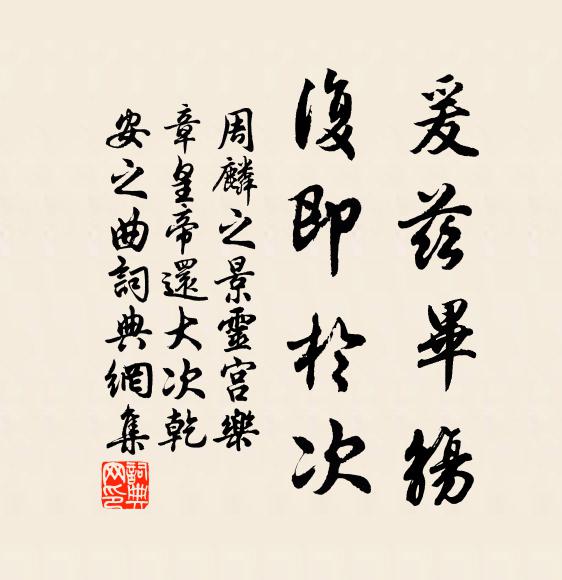 爰茲畢觴
復即於次
周麟之景靈宮樂
章皇帝還大次乾
安之曲詞典網集
詞典
网印